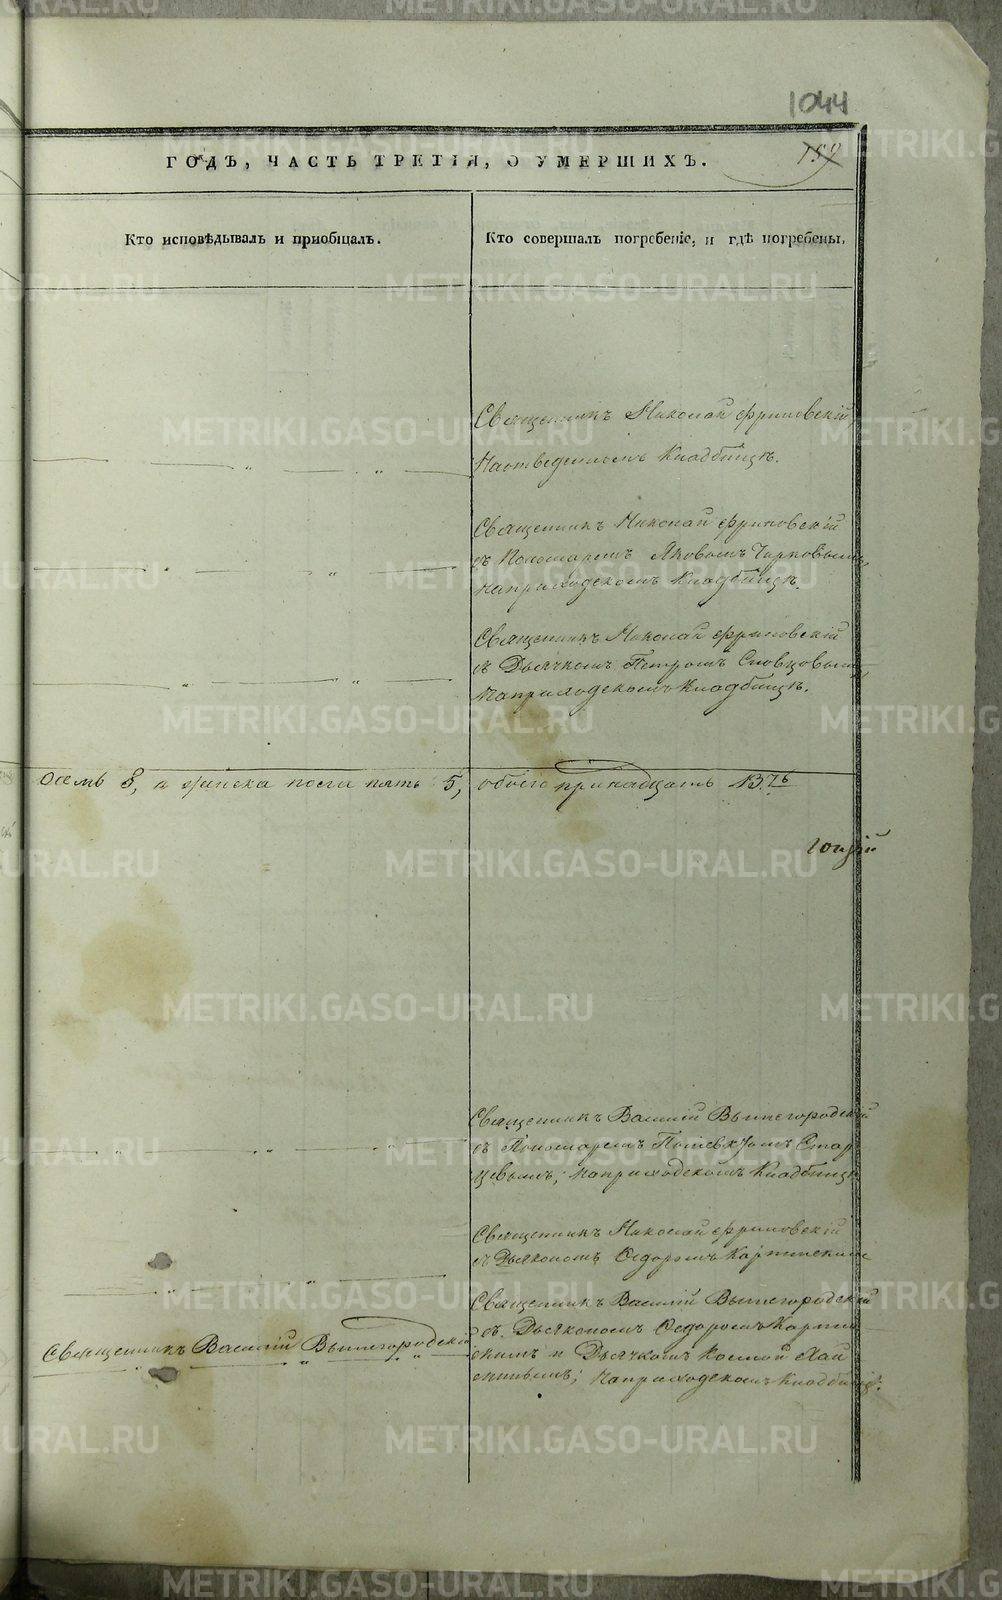 1044
159
ГОДЪ, ЧАСТЬ ТРЕТІЯ, О УМЕРШИХЪ.
Кто исповѣдывалъ и пріобщалъ.
Кто совершалъ погребеніе, и гдѣ погребены.
Священникъ Николай Фриновскій,
Наотведенномъ Кладбищѣ.
Священникъ Николай Фриновскій
съ Пономаремъ Яковомъ
Наприходскомъ Кладбищѣ.
Священникъ Николай Фриновскій
съ Дьячкомъ Петромъ Словцовымъ
Наприходскомъ Кладбищѣ.
осемь 8, а женска пола пять 5, обоего тринадцать 13.ть
Священникъ Василій Вышегородскій
съ Пономаремъ Стар
цевымъ, Наприходскомъ Кладбищѣ
Священникъ Николай Фриновскій
съ Дьякономъ Ѳедоромъ
Священникъ Василій Вышегородскій
Священникъ Василій Вышегородскій
съ Дьякономъ Ѳедоромъ
скимъ и Дьячкомъ Космой
Наприходскомъ Кладбищѣ.
METRIKI.GASO-URAL.RU